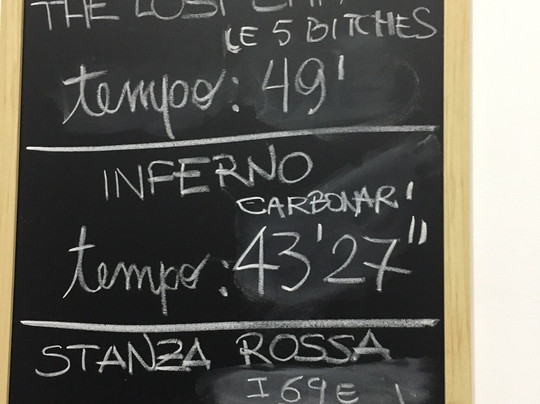 THE LOST
LE 5 BITCHES
tempo: 49'
INFERNO
CARBONARI
tempo: 43'27"
STANZA ROSSA
I 69E